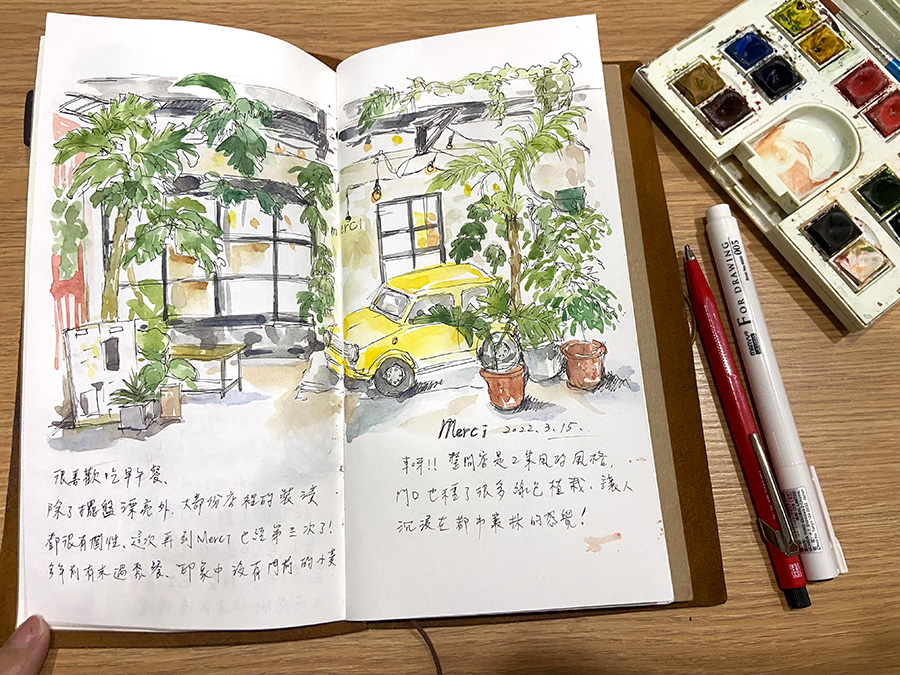 merci
很喜歡吃早午餐、
除了擺盤漂亮外、大部份店裡的裝潢
都很有個性、這次再到Merci 也經第三次了!
多年前有來過聚餐、印象中沒有門前的小黃
Merci 2022.3.15.
車呀!! 整間店是工業風的風格,
門口也種了很多綠色植栽、讓人
沉浸在都市叢林的感覺!
FOR DRAWING 005